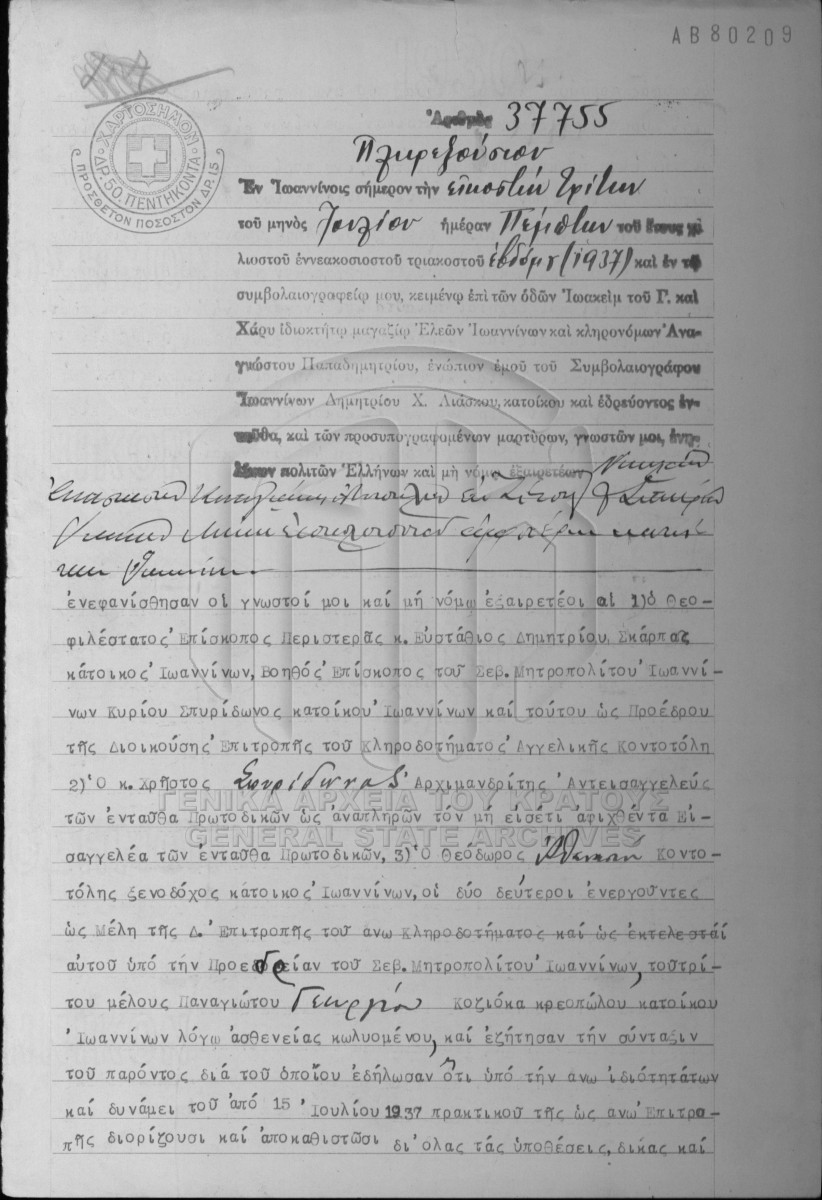 ΑΒ80209
ΧΑΡΤΟΣΗΜΟΝ
ΔΡ. 50. ΠΕΝΤΗΚΟΝΤΑ
ΠΡΟΣΘΕΤΟΝ ΠΟΣΟΣΤΟΝ ΔΡ. 15
Ἀριθμὸς 37755
Πληρεξούσιον
Ἐν Ἰωαννίνοις σήμερον τὴν εἰκοστήν τρίτην
τοῦ μηνὸς Ἰουλίου ἡμέραν Πέμπτην τοῦ ἔτους χι
λιοστοῦ ἐννεακοσιοστοῦ τριακοστοῦ ἑβδόμου (1937) καὶ ἐν τῷ
συμβολαιογραφείῳ μου, κειμένῳ ἐπὶ τῶν ὁδῶν Ἰωακεὶμ τοῦ Γ. καὶ
Χάρυ ἰδιοκτήτῳ μαγαζίῳ Ἐλεῶν Ἰωαννίνων καὶ κληρονόμων Ἀνα-
γνώστου Παπαδημητρίου, ἐνώπιον ἐμοῦ τοῦ Συμβολαιογράφου
Ἰωαννίνων Δημητρίου Χ. Λιάσκου, κατοίκου καὶ ἑδρεύοντος ἐν-
ταῦθα, καὶ τῶν προσυπογραφομένων μαρτύρων, γνωστῶν μοι, ἐνη-
λίκων πολιτῶν Ἑλλήνων καὶ μὴ νόμῳ ἐξαιρετέων
ἐνεφανίσθησαν οἱ γνωστοί μοι καί μή νόμῳ ἐξαιρετέοι αἱ 1)ὁ Θεο-
φιλέστατος Ἐπίσκοπος Περιστερᾶς κ. Εὐστάθιος Δημητρίου Σκάρπας
κάτοικος Ἰωαννίνων, Βοηθός Ἐπίσκοπος τοῦ Σεβ. Μητροπολίτου Ἰωαννί-
νων Κυρίου Σπυρίδωνος κατοίκου Ἰωαννίνων καί τούτου ὡς Προέδρου
τῆς Διοικούσης Ἐπιτροπῆς τοῦ Κληροδοτήματος Ἀγγελικῆς Κοντοτόλη
2) Ὁ κ. Χρῆστος Σπυρίδωνος Ἀρχιμανδρίτης Ἀντεισαγγελεύς
τῶν ἐνταῦθα Πρωτοδικῶν ὡς ἀναπληρῶν τόν μή εἰσέτι ἀφιχθέντα Εἰ-
σαγγελέα τῶν ἐνταῦθα Πρωτοδικῶν, 3) Ὁ Θεόδωρος Κοντο-
τόλης ξενοδόχος κάτοικος Ἰωαννίνων, οἱ δύο δεύτεροι ἐνεργοῦντες
ὡς Μέλη τῆς Δ. Ἐπιτροπῆς τοῦ ἄνω Κληροδοτήματος καί ὡς ἐκτελεσταί
αὐτοῦ ὑπό τήν Προεδρείαν τοῦ Σεβ. Μητροπολίτου Ἰωαννίνων, τοῦ τρί-
του μέλους Παναγιώτου Γεωργίου Κοζιόκα κρεοπώλου κατοίκου
Ἰωαννίνων λόγῳ ἀσθενείας κωλυομένου, καί ἐζήτησαν τήν σύνταξιν
τοῦ παρόντος διά τοῦ ὁποίου ἐδήλωσαν ὅτι ὑπό τήν ἄνω ἰδιότητάτων
καί δυνάμει τοῦ ἀπό 15 Ἰουλίου 1937 πρακτικοῦ τῆς ὡς ἄνω Ἐπιτρο-
πῆς διορίζουσι καί ἀποκαθιστῶσι δι' ὅλας τάς ὑποθέσεις, δίκας καί
ΓΕΝΙΚΑ ΑΡΧΕΙΑ ΤΟΥ ΚΡΑΤΟΥΣ
GENERAL STATE ARCHIVES